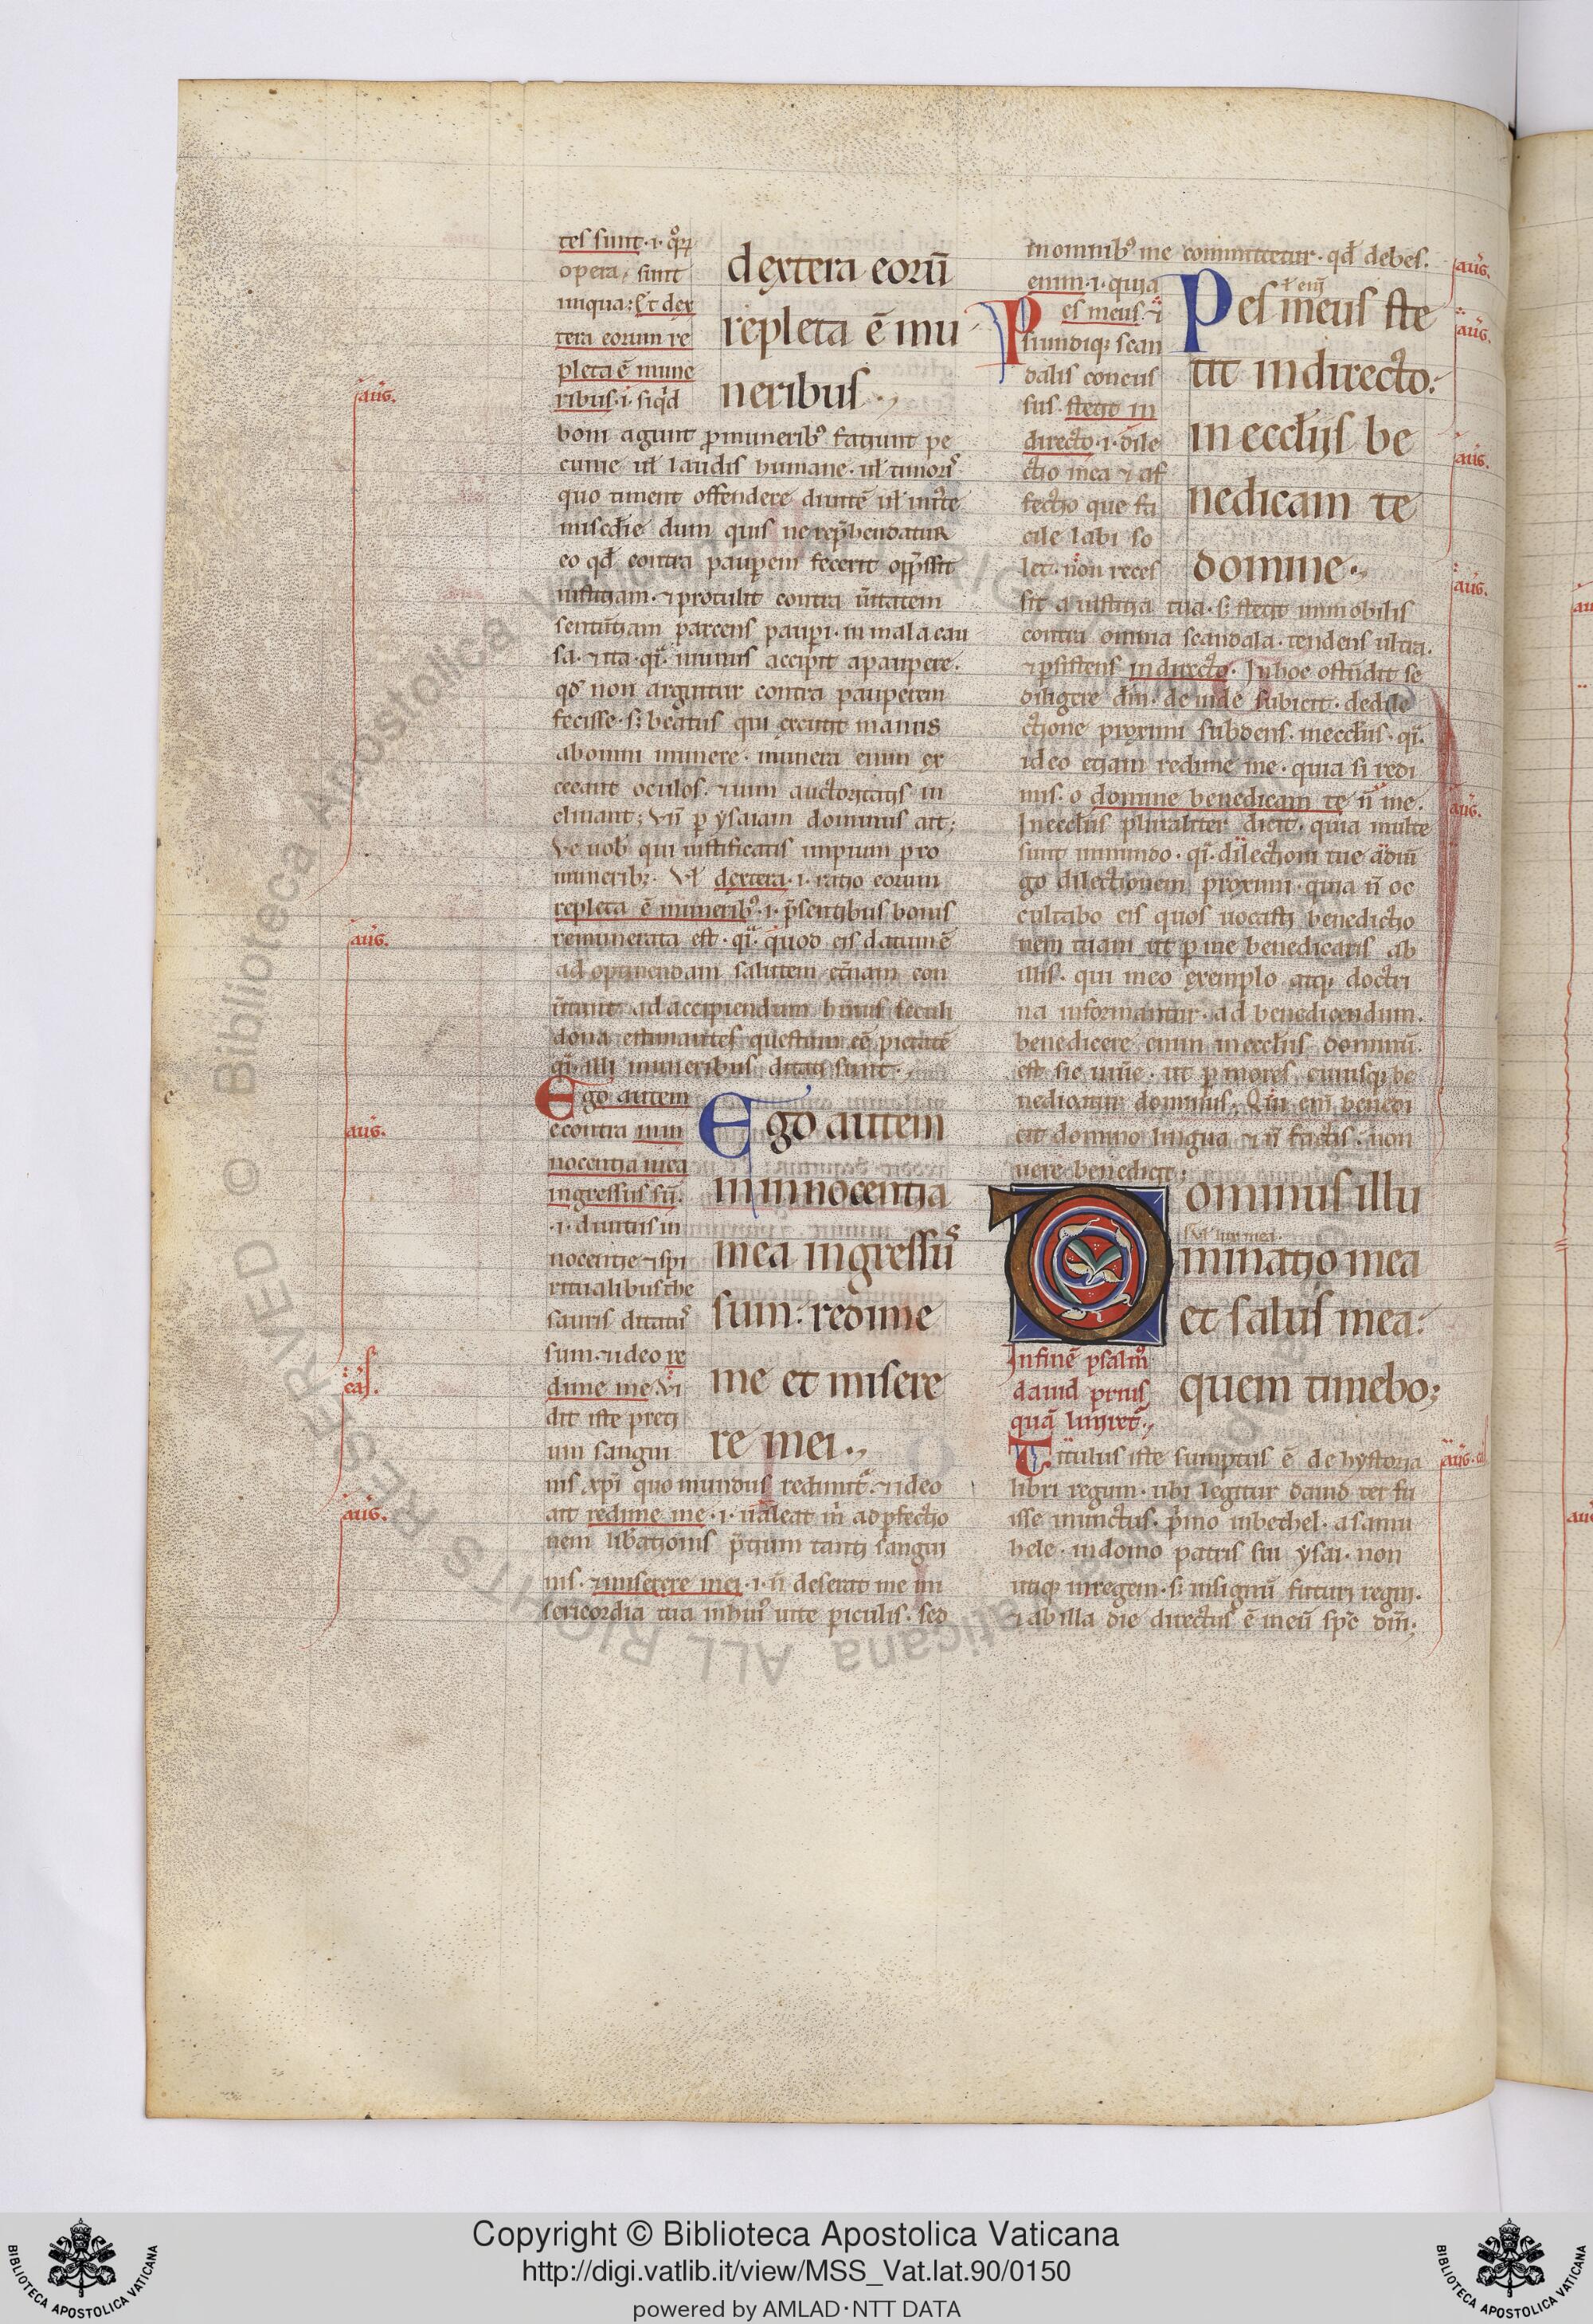 tes sunt .i. quorum
opera sunt
iniqua: Et dex
tera eorum re
pleta ē mune
ribus .i. siqd
dextera eorū
repleta ē mu
neribus.
boni agunt p muneribꝰ faciunt pe
cunie ul laudis humane. ul timoris
quo timent offendere
miscdie dum quis ne rephendatur
eo qd contra pauperem fecerit
iusticiam. ⁊ protulit contra ūitatem
sententiam parcens paupi. in mala cau
sa. ⁊ ita. qi. munus accipit a paupere.
qd non arguitur contra pauperem
fecisse. s; beatus qui excutit manus
ab omni munere. munera enim ex
cecant oculos. ⁊ uim auctoritatis in
clinant; Vn̄ p ysaiam dominus ait;
Ve uob qui iustificatis impium pro
munerib;. Vl dextera .i. ratio eorum
repleta ē muneribꝰ .i. p̄sentibus bonis
remunerata est. qi. quod eis datum ē
ad optinendam salutem et̄nam con
ūtunt ad accipiendum huius seculi
dona estimantes questum eē pietatē
qi. illi muneribus ditati sunt.
Ego autem
econtra in in
nocentia mea
ingressus sū.
.i. diuitiis in
nocentie ⁊ spi
ritualibus the
sauris ditatus
sum. ⁊ ideo re
dime me. Vi
dit iste preti
um sangui
Ego autem
in innocentia
mea ingressus
sum: redime
me et misere
re mei.
nis xp̄i quo mundus redimit᷑. ⁊ ideo
ait redime me .i. ualeat m̄ ad pfectio
nem libationis p̄tium tanti sangui
nis. ⁊ miserere mei .i. n̄ deserat me mi
sericordia tua in huiꝰ uite piculis. sed
in omnibꝰ me comitetur. qd debes.
enim .i. quia
Pes meus ⁊
si undiq; scan
dalis concus
sus. stetit in
directo .i. dile
ctio mea ⁊ af
fectio que fa
cile labi so
let. non reces
Pes meus ste
tit in directo:
in ecclīis be
nedicam te
domine.
sit a iustitia tua. s; stetit immobilis
contra omnia scandala. tendens ultra.
⁊ psistens in directo. In hoc ostendit se
diligere dm̄. deinde subicit. de dile
ctione proximi subdens. in ecclīis. qi.
ideo etiam redime me. quia si redi
mis. o domine benedicam te n̄ me.
In ecclīis pluraliter dicit. quia multe
sunt in mundo. qi. dilectioni tue adiū
go dilectionem proximi. quia n̄ oc
cultabo eis quos uocasti benedictio
nem tuam ut p me benedicaris ab
illis. qui meo exemplo atq; doctri
na informantur. ad benedicendum.
benedicere enim in ecclīis dominū.
est sic uiuere. ut p mores cuiusq; be
nedicatur dominus. Qui eni benedi
cit domino lingua ⁊ n̄ factis. non
uere benedicit;
Dominus illu
minatio mea
et salus mea:
quem timebo;
In finē psalmꝰ
dauid prius
quā liniret᷑.
Titulus iste sumptus ē de hystoria
libri regum. ubi legitur dauid ter fu
isse inunctus. primo in bethel. a samu
hele. in domo patris sui ysai. non
utiq; in regem. s; in signū futuri regni.
⁊ ab illa die directus ē in eū spc̄ dn̄i.
aug.
aug.
aug.
cas.
aug.
aug.
aug.
aug.
aug.
aug.
aug.
Copyright © Biblioteca Apostolica Vaticana
http://digi.vatlib.it/view/MSS_Vat.lat.90/0150
powered by AMLAD·NTT DATA
BIBLIOTECA APOSTOLICA VATICANA
BIBLIOTECA APOSTOLICA VATICANA